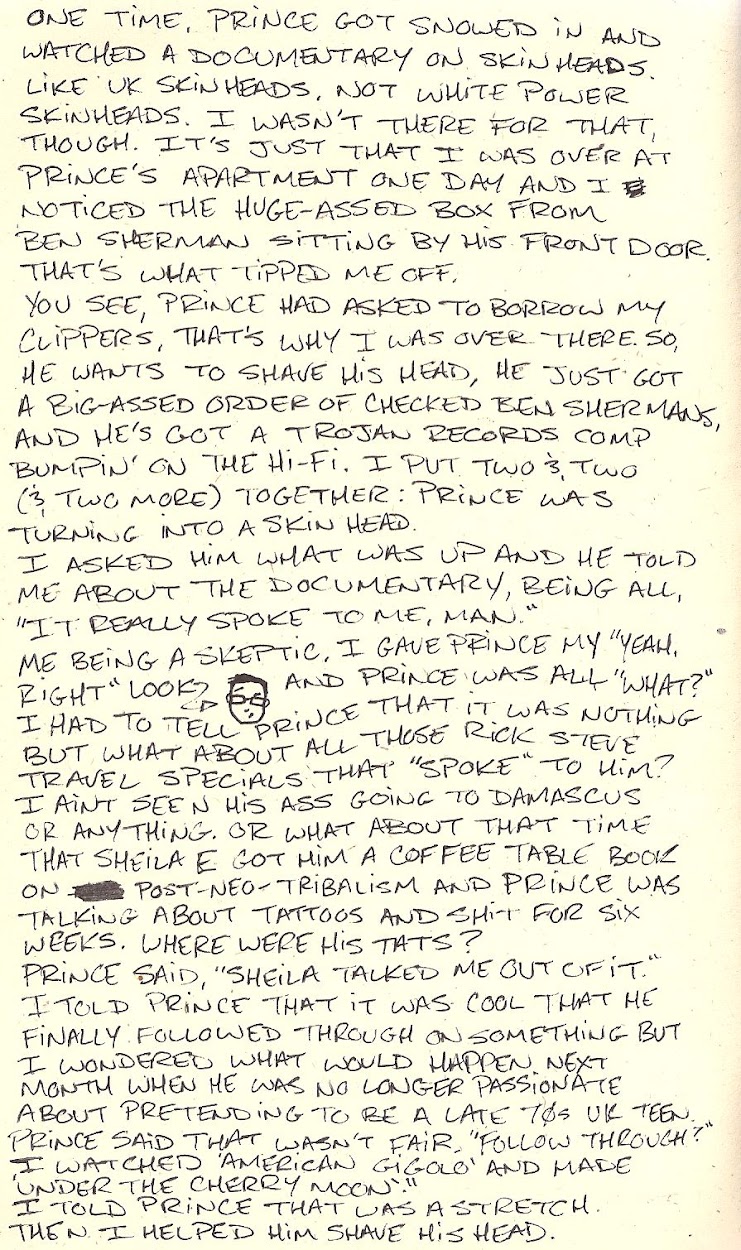 ONE TIME, PRINCE GOT SNOWED IN AND
WATCHED A DOCUMENTARY ON SKINHEADS.
LIKE UK SKINHEADS, NOT WHITE POWER
SKINHEADS. I WASN'T THERE FOR THAT,
THOUGH. IT'S JUST THAT I WAS OVER AT
PRINCE'S APARTMENT ONE DAY AND I
NOTICED THE HUGE-ASSED BOX FROM
BEN SHERMAN SITTING BY HIS FRONT DOOR.
THAT'S WHAT TIPPED ME OFF.
YOU SEE, PRINCE HAD ASKED TO BORROW MY
CLIPPERS, THAT'S WHY I WAS OVER THERE. SO,
HE WANTS TO SHAVE HIS HEAD, HE JUST GOT
A BIG-ASSED ORDER OF CHECKED BEN SHERMANS,
AND HE'S GOT A TROJAN RECORDS COMP
BUMPIN' ON THE HI-FI. I PUT TWO & TWO
(& TWO MORE) TOGETHER: PRINCE WAS
TURNING INTO A SKIN HEAD.
I ASKED HIM WHAT WAS UP AND HE TOLD
ME ABOUT THE DOCUMENTARY, BEING ALL,
"IT REALLY SPOKE TO ME, MAN."
ME BEING A SKEPTIC, I GAVE PRINCE MY "YEAH,
RIGHT" LOOK AND PRINCE WAS ALL "WHAT?"
I HAD TO TELL PRINCE THAT IT WAS NOTHING
BUT WHAT ABOUT ALL THOSE RICK STEVE
TRAVEL SPECIALS THAT "SPOKE" TO HIM?
I AINT SEEN HIS ASS GOING TO DAMASCUS
OR ANYTHING. OR WHAT ABOUT THAT TIME
THAT SHEILA E GOT HIM A COFFEE TABLE BOOK
ON POST-NEO-TRIBALISM AND PRINCE WAS
TALKING ABOUT TATTOOS AND SHIT FOR SIX
WEEKS. WHERE WERE HIS TATS?
PRINCE SAID, "SHEILA TALKED ME OUT OF IT."
I TOLD PRINCE THAT IT WAS COOL THAT HE
FINALLY FOLLOWED THROUGH ON SOMETHING BUT
I WONDERED WHAT WOULD HAPPEN NEXT
MONTH WHEN HE WAS NO LONGER PASSIONATE
ABOUT PRETENDING TO BE A LATE 70s UK TEEN.
PRINCE SAID THAT WASN'T FAIR, "FOLLOW THROUGH?
I WATCHED 'AMERICAN GIGOLO' AND MADE
'UNDER THE CHERRY MOON'."
I TOLD PRINCE THAT WAS A STRETCH.
THEN I HELPED HIM SHAVE HIS HEAD.